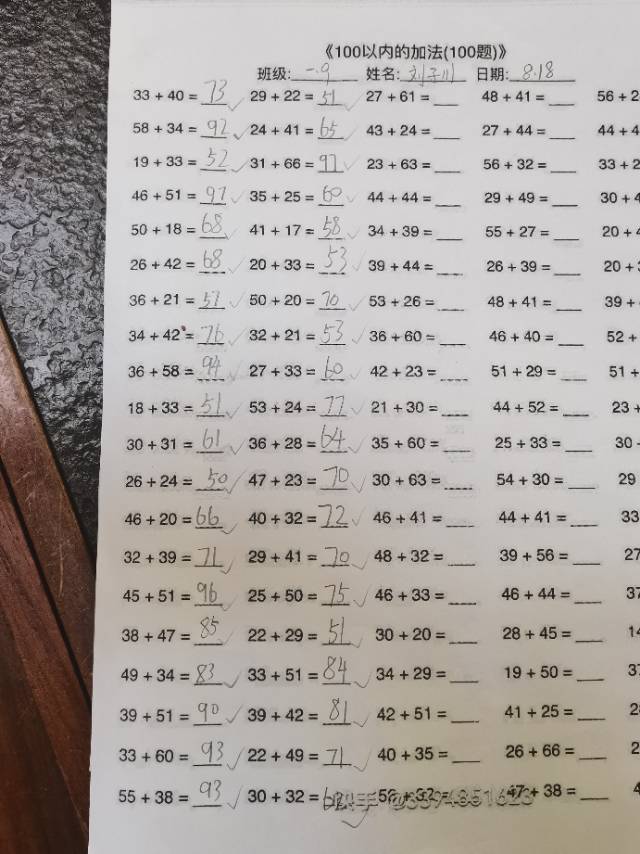 《100以内的加法(100题)》
班级: 一.9 姓名: 刘子川 日期: 8.18
33 + 40 = 73 29 + 22 = 51 27 + 61 = 48 + 41 = 56 + 2
58 + 34 = 92 24 + 41 = 65 43 + 24 = 27 + 44 = 44 + 4
19 + 33 = 52 31 + 66 = 97 23 + 63 = 56 + 32 = 33 + 2
46 + 51 = 97 35 + 25 = 60 44 + 44 = 29 + 49 = 30 + 4
50 + 18 = 68 41 + 17 = 58 34 + 39 = 55 + 27 = 20 + 4
26 + 42 = 68 20 + 33 = 53 39 + 44 = 26 + 39 = 20 +
36 + 21 = 57 50 + 20 = 70 53 + 26 = 48 + 41 = 39 +
34 + 42 = 76 32 + 21 = 53 36 + 60 = 46 + 40 = 52 +
36 + 58 = 94 27 + 33 = 60 42 + 23 = 51 + 29 = 51 +
18 + 33 = 51 53 + 24 = 77 21 + 30 = 44 + 52 = 23 +
30 + 31 = 61 36 + 28 = 64 35 + 60 = 25 + 33 = 30
26 + 24 = 50 47 + 23 = 70 30 + 63 = 54 + 30 = 29
46 + 20 = 66 40 + 32 = 72 46 + 41 = 44 + 41 = 33
32 + 39 = 71 29 + 41 = 70 48 + 32 = 39 + 56 = 27
45 + 51 = 96 25 + 50 = 75 46 + 33 = 46 + 44 = 37
38 + 47 = 85 22 + 29 = 51 30 + 20 = 28 + 45 = 14
49 + 34 = 83 33 + 51 = 84 34 + 29 = 19 + 50 = 37
39 + 51 = 90 39 + 42 = 81 42 + 51 = 41 + 25 = 2
33 + 60 = 93 22 + 49 = 71 40 + 35 = 26 + 66 = 2
55 + 38 = 93 30 + 32 = 62 + 32 = 47 + 38 = 4
快手 @3394851623